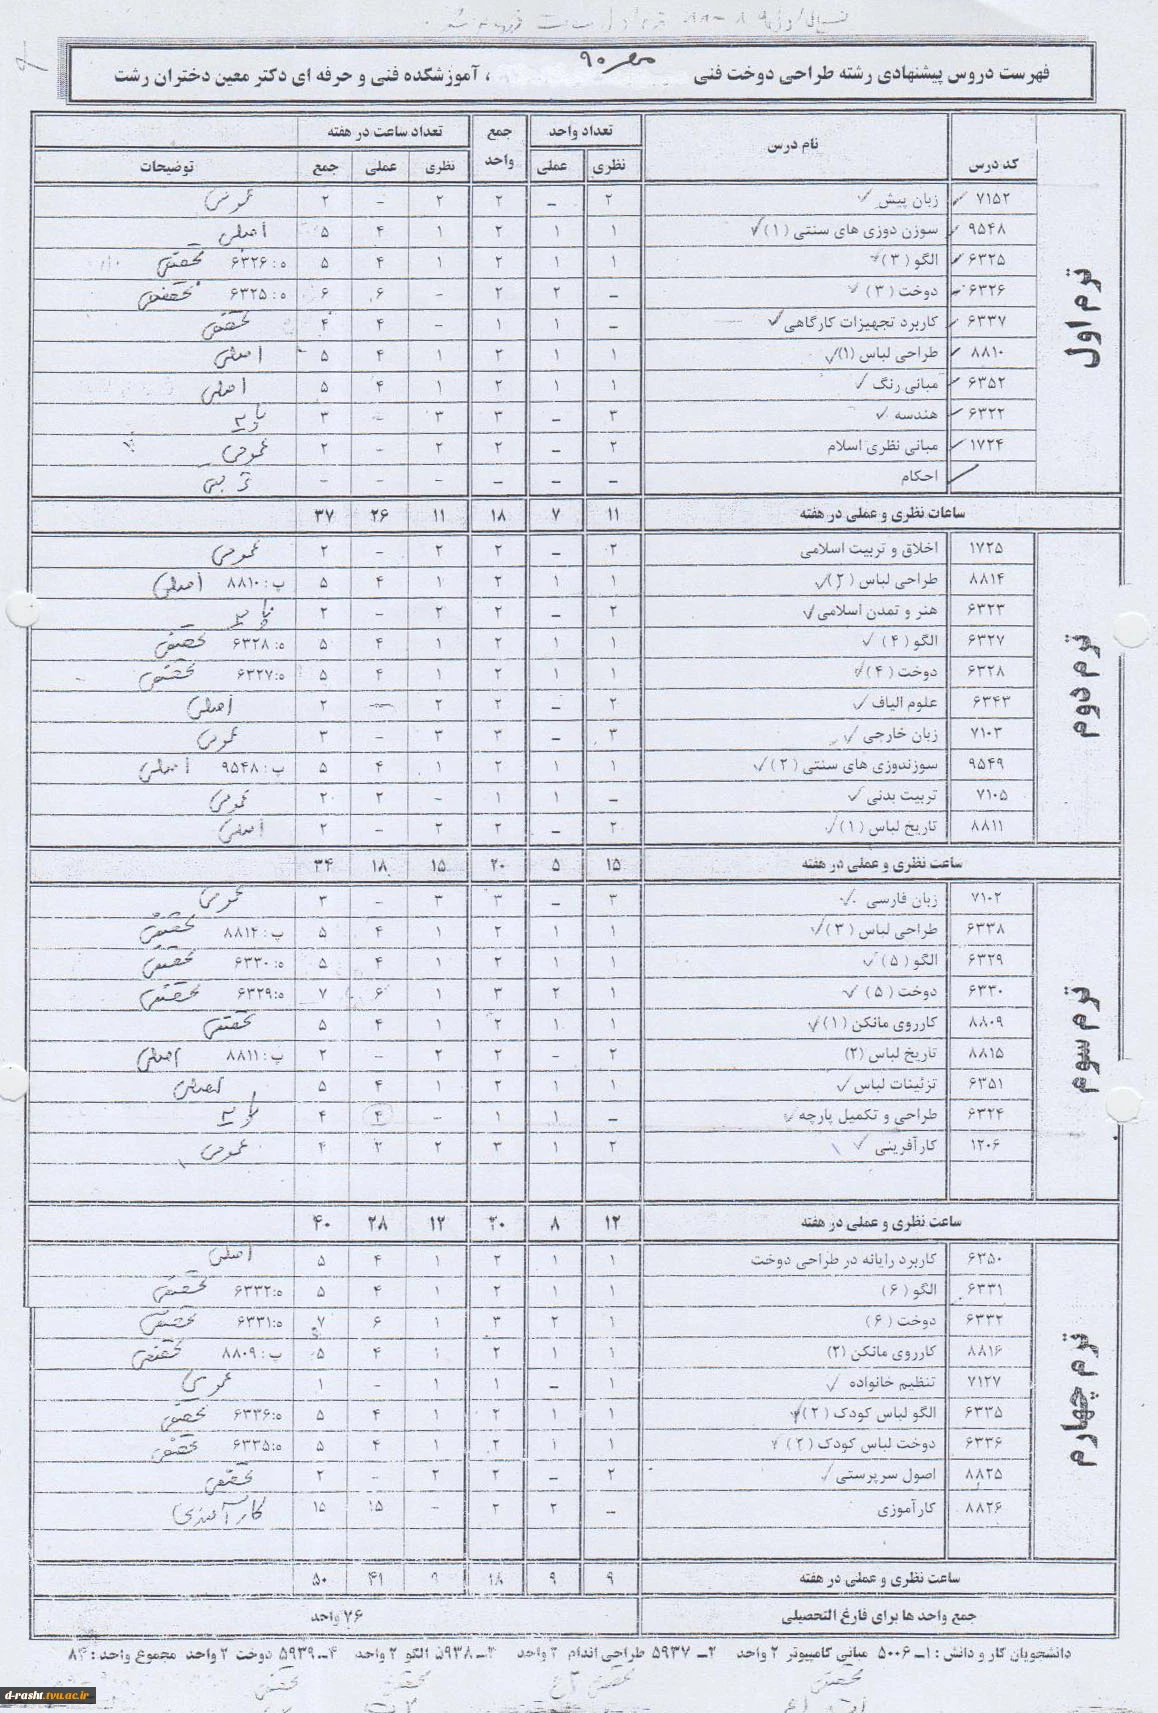 فهرست دروس پیشنهادی رشته طراحی دوخت فنی مهر ۹۰ ، آموزشکده فنی و حرفه ای دکتر معین دختران رشت
کد درس نام درس تعداد واحد جمع واحد تعداد ساعت در هفته توضیحات
نظری عملی نظری عملی جمع
ترم اول
۷۱۵۲ زبان پیش ۲ – ۲ ۲ – ۲ عمومی
۹۵۴۸ سوزن دوزی های سنتی (۱) ۱ ۱ ۲ ۱ ۴ ۵ اصلی
۶۳۲۵ الگو (۳) ۱ ۱ ۲ ۱ ۴ ۵ ه: ۶۳۲۶ تخصصی
۶۳۲۶ دوخت (۳) – ۲ ۲ – ۶ ۶ ه: ۶۳۲۵ تخصصی
۶۳۳۷ کاربرد تجهیزات کارگاهی – ۱ ۱ – ۴ ۴ تخصصی
۸۸۱۰ طراحی لباس (۱) ۱ ۱ ۲ ۱ ۴ ۵ اصلی
۶۳۵۲ مبانی رنگ ۱ ۱ ۲ ۱ ۴ ۵ اصلی
۶۳۲۲ هندسه ۳ – ۳ ۳ – ۳ پایه
۱۷۲۴ مبانی نظری اسلام ۲ – ۲ ۲ – ۲ عمومی
احکام – – – – – –
ساعات نظری و عملی در هفته ۱۱ ۷ ۱۸ ۱۱ ۲۶ ۳۷
ترم دوم
۱۷۲۵ اخلاق و تربیت اسلامی ۲ – ۲ ۲ – ۲ عمومی
۸۸۱۴ طراحی لباس (۲) ۱ ۱ ۲ ۱ ۴ ۵ پ: ۸۸۱۰ اصلی
۶۳۲۳ هنر و تمدن اسلامی ۲ – ۲ ۲ – ۲ پایه
۶۳۲۷ الگو (۴) ۱ ۱ ۲ ۱ ۴ ۵ ه: ۶۳۲۸ تخصصی
۶۳۲۸ دوخت (۴) ۱ ۱ ۲ ۱ ۴ ۵ ه: ۶۳۲۷ تخصصی
۶۳۴۳ علوم الیاف ۲ – ۲ ۲ – ۲ اصلی
۷۱۰۳ زبان خارجی ۳ – ۳ ۳ – ۳ عمومی
۹۵۴۹ سوزندوزی های سنتی (۲) ۱ ۱ ۲ ۱ ۴ ۵ پ: ۹۵۴۸ اصلی
۷۱۰۵ تربیت بدنی – ۱ ۱ – ۲ ۲ عمومی
۸۸۱۱ تاریخ لباس (۱) ۲ – ۲ ۲ – ۲ اصلی
ساعت نظری و عملی در هفته ۱۵ ۵ ۲۰ ۱۵ ۱۸ ۳۴
ترم سوم
۷۱۰۲ زبان فارسی ۳ – ۳ ۳ – ۳ عمومی
۶۳۳۸ طراحی لباس (۳) ۱ ۱ ۲ ۱ ۴ ۵ پ: ۸۸۱۴ تخصصی
۶۳۲۹ الگو (۵) ۱ ۱ ۲ ۱ ۴ ۵ ه: ۶۳۳۰ تخصصی
۶۳۳۰ دوخت (۵) ۱ ۲ ۳ ۱ ۶ ۷ ه: ۶۳۲۹ تخصصی
۸۸۰۹ کارروی مانکن (۱) ۱ ۱ ۲ ۱ ۴ ۵ تخصصی
۸۸۱۵ تاریخ لباس (۲) ۲ – ۲ ۲ – ۲ پ: ۸۸۱۱ اصلی
۶۳۵۱ تزئینات لباس ۱ ۱ ۲ ۱ ۴ ۵ اصلی
۶۳۲۴ طراحی و تکمیل پارچه – ۱ ۱ – ۴ ۴ پایه
۱۲۰۶ کارآفرینی ۲ ۱ ۳ ۲ ۲ ۴ عمومی
ساعت نظری و عملی در هفته ۱۲ ۸ ۲۰ ۱۲ ۲۸ ۴۰
ترم چهارم
۶۳۵۰ کاربرد رایانه در طراحی دوخت ۱ ۱ ۲ ۱ ۴ ۵ اصلی
۶۳۳۱ الگو (۶) ۱ ۱ ۲ ۱ ۴ ۵ ه: ۶۳۳۲ تخصصی
۶۳۳۲ دوخت (۶) ۱ ۲ ۳ ۱ ۶ ۷ ه: ۶۳۳۱ تخصصی
۸۸۱۶ کارروی مانکن (۲) ۱ ۱ ۲ ۱ ۴ ۵ پ: ۸۸۰۹ تخصصی
۷۱۲۷ تنظیم خانواده ۱ – ۱ ۱ – ۱ عمومی
۶۳۳۵ الگو لباس کودک (۲) ۱ ۱ ۲ ۱ ۴ ۵ ه: ۶۳۳۶ تخصصی
۶۳۳۶ دوخت لباس کودک (۲) ۱ ۱ ۲ ۱ ۴ ۵ ه: ۶۳۳۵ تخصصی
۸۸۲۵ اصول سرپرستی ۲ – ۲ ۲ – ۲ تخصصی
۸۸۲۶ کارآموزی – ۲ ۲ – ۱۵ ۱۵ کارآموزی
ساعت نظری و عملی در هفته ۹ ۹ ۱۸ ۹ ۴۱ ۵۰
جمع واحد ها برای فارغ التحصیلی ۷۶ واحد
دانشجویان کار و دانش : ۱ـ ۵۰۰۶ مبانی کامپیوتر ۲ واحد ۲ـ ۵۹۳۷ طراحی اندام ۲ واحد ۳ـ ۵۹۳۸ الگو ۲ واحد ۴ـ ۵۹۳۹ دوخت ۲ واحد مجموع واحد : ۸۴
تخصصی تخصصی تخصصی تخصصی
d-rasht.tvu.ac.ir